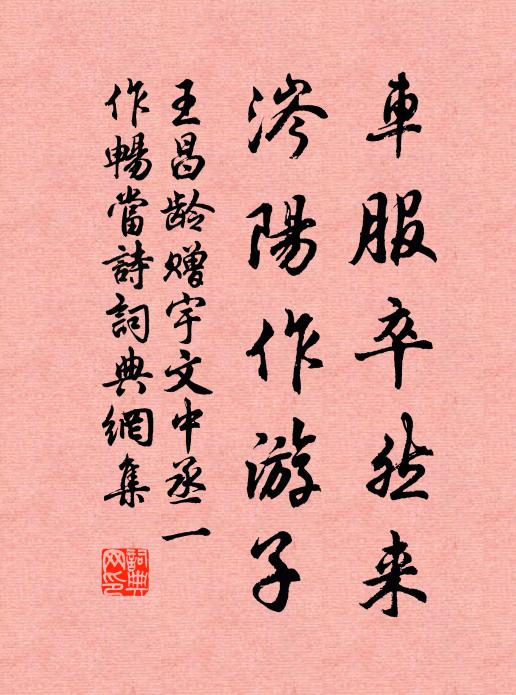 車服卒然来
涔陽作游子
王昌龄赠宇文中丞一
作暢當詩詞典網集
詞典
网印